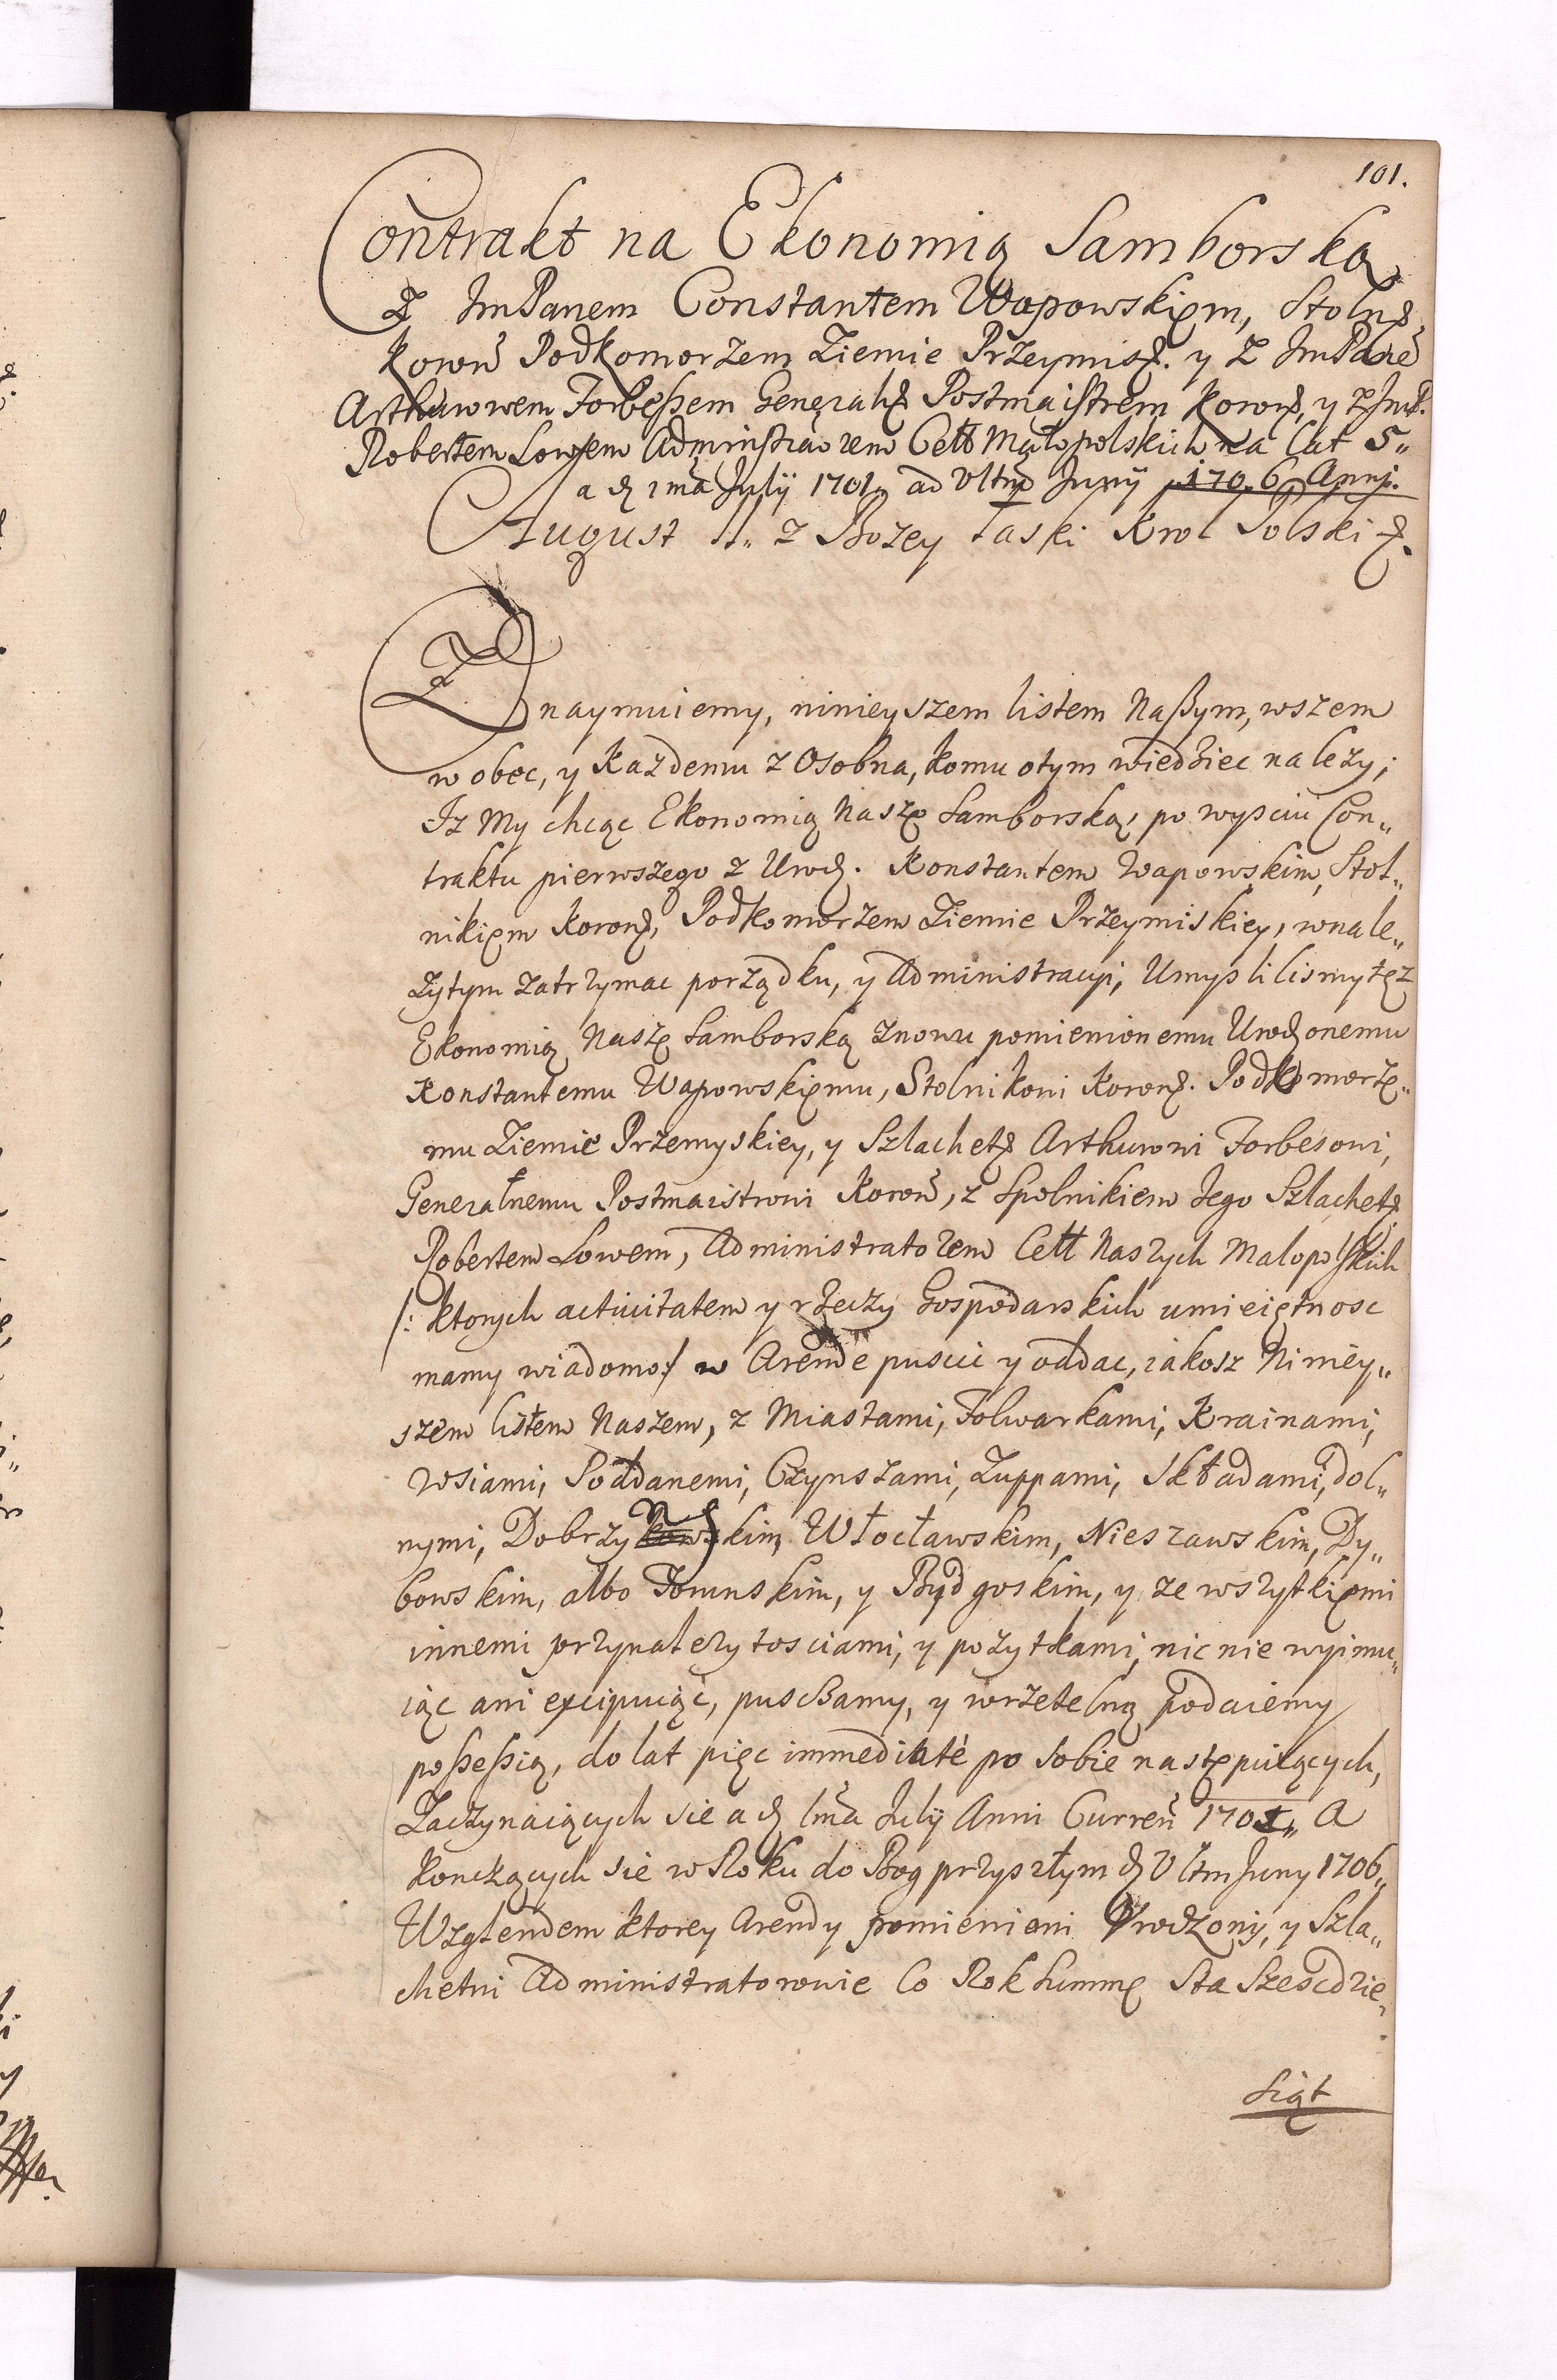 101.
Contrakt na Ekonomią Samborską
Z ImPanem Constantem Wapowskięm, Stoln
Koroñ Podkomorzem Ziemie Przeymis. y Z ImPañe
Arthurowem Forbeßem Generaln Postmaistrem Koron, y z Imß.
Robertem Lowsem Administratorem Cełł Małopolskich na Lat 5„
a d 1mã Julÿ 1701„ ad Vltmã Junÿ 1706 Anni.
August II„ z Bozey Łaski Krol Polski &.
Znaymuiemy, ninieyszem listem Naßym, wszem
w obec, y Kazdemu z Osobna, komu otym wiedziec nalezy;
Iz My chcąc Ekonomią Naszę Samborską, po wysciu Con„
traktu pierwszego z Urod. Konstantem Wapowskim, Stol„
nikięm Koron, Podkomorzem Ziemie Przeymiskiey, wnale„
zytym zatrzymac porządku, y Administracyi, Umyslilismytęz
Ekonomią Naszę Samborską znowu pomienionemu Urodzonemu
Konstantemu Wapowskięmu, Stolnikowi Koron. Podkomorzę„
mu Ziemie Przemyskiey, y Szlachet Arthurowi Forbesowi,
Generalnemu Postmaistrowi Koroñ, z Spolnikiem Jego Szlachet
Robertem Lowem, Administratorem Cełł Naszych Malopolskich
/: ktorych activitatem y rzeczy Gospodarskich umieiętnosc
mamy wiadomo:/ w Arende puscic y oddac, iakosz Niniey„
szem listem Naszem, z Miastami, Folwarkami, Krainami,
Wsiami, Poddanemi, Czynszami, Zuppami, Składami, dol„
nymi, Dobrzynskim, Włocławskim, Nieszawskim, Dy„
bowskim, albo Torunskim, y Bydgoskim, y ze wszytkięmi
innemi przynalezytosciami, y pozytkami, nic nie wyimu„
iąc ani excipuiąc, puscßamy, y wrzetelną podaiemy
poßeßią, do lat pięc immediaté po sobie następuiących,
Zaczynaiących sie a d 1mã Julÿ Anni Curreñ 1701„ A
konczących sie w Roku do Bog przyszłym d Vltm Juny 1706„
Wzglendem ktorey Arendy pomienieni Vrodzony, y Szla„
chetni Administratorowie Co Rok Summę Sta Szescdzie„
siąt